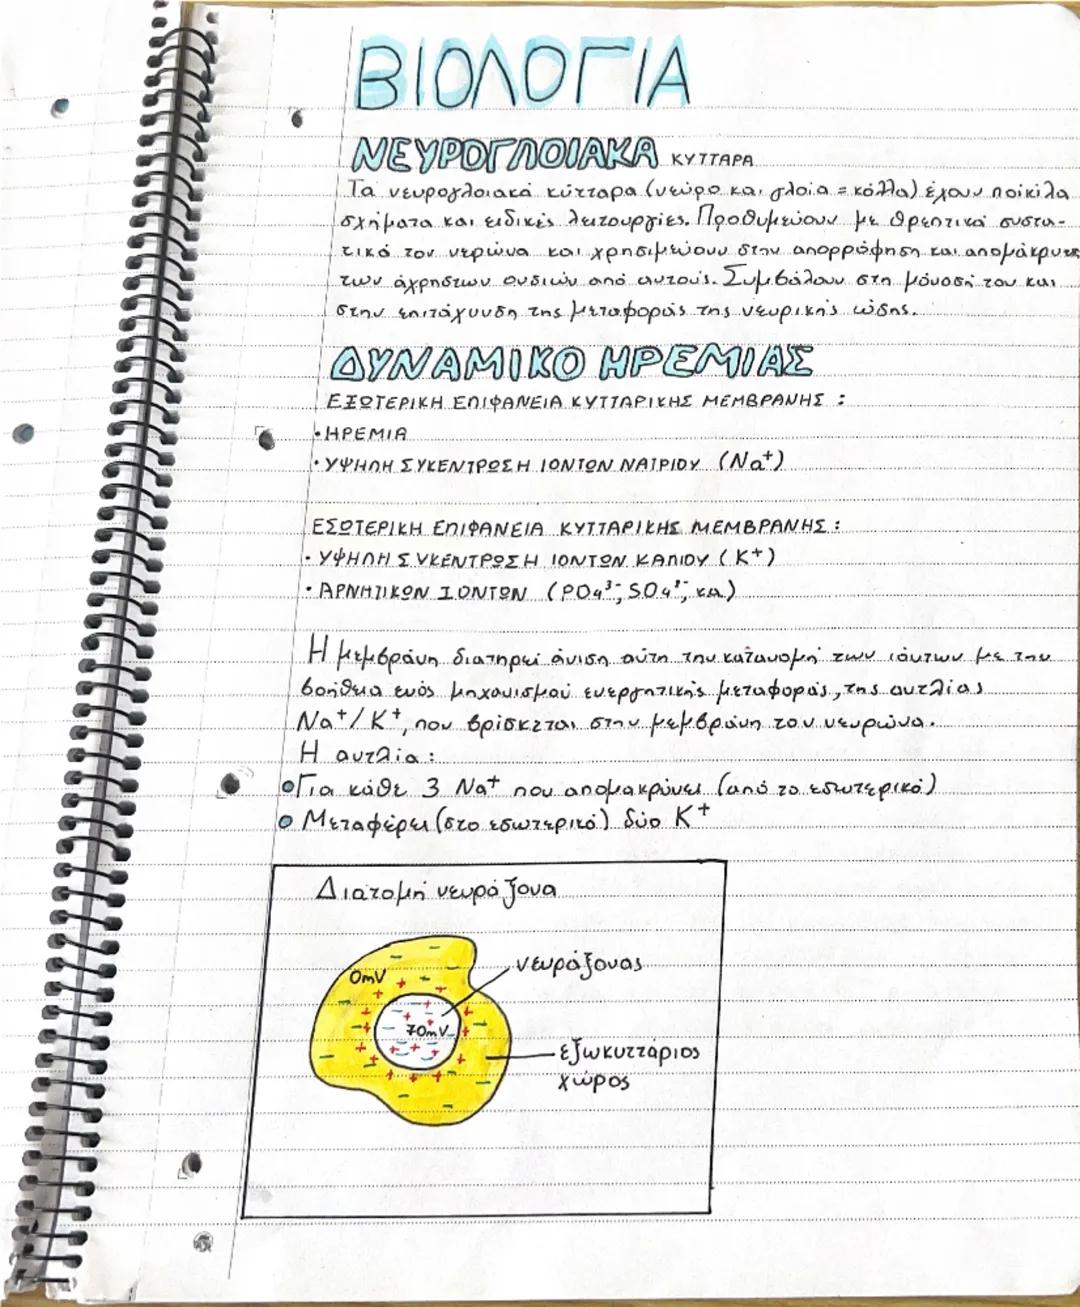 ΒΙΟΛΟΓΙΑ
ΝΕΥΡΟΓΛΟΙΑΚΑ ΚΥΤΤΑΡΑ
Τα νευρογλοιακά κύτταρα (νεύρο και γλοία = κόλλα) έχουν ποικίλα
σχήματα και ειδικές λειτουργίες. Προθυμεύουν με θρεπτικά συστα-
τικά τον νερώνα και χρησιμεύουν στην απορρόφηση και απομάκρυνση
των άχρηστων ουσιών από αυτούς. Συμβάλουν στη μόνωσή του και
στην επιτάχυνση της μεταφοράς της νευρικής ώσης.
ΔΥΝΑΜΙΚΟ ΗΡΕΜΙΑΣ
ΕΞΩΤΕΡΙΚΗ ΕΠΙΦΑΝΕΙΑ ΚΥΤΤΑΡΙΚΗΣ ΜΕΜΒΡΑΝΗΣ :
• ΗΡΕΜΙΑ
• ΥΨΗΛΗ ΣΥΚΕΝΤΡΩΣΗ ΙΟΝΤΩΝ ΝΑΤΡΙΟΥ (Na⁺)
ΕΣΩΤΕΡΙΚΗ ΕΠΙΦΑΝΕΙΑ ΚΥΤΤΑΡΙΚΗΣ ΜΕΜΒΡΑΝΗΣ :
• ΥΨΗΛΗ ΣΥΚΕΝΤΡΩΣΗ ΙΟΝΤΩΝ ΚΑΛΙΟΥ (K⁺)
• ΑΡΝΗΤΙΚΩΝ ΙΟΝΤΩΝ (PO₄³⁻, SO₄²⁻, κα)
Η μεμβράνη διατηρεί άνιση αυτή την κατανομή των ιόντων με την
βοήθεια ενός μηχανισμού ενεργητικής μεταφοράς, της αντλίας
Na⁺/K⁺, που βρίσκεται στην μεμβράνη του νευρώνα.
Η αντλία :
Για κάθε 3 Na⁺ που απομακρύνει (από το εσωτερικό)
Μεταφέρει (στο εσωτερικό) δύο K⁺
Διατομή νευράξονα
νευράξονας
0mV
70mV
εξωκυττάριος
χώρος